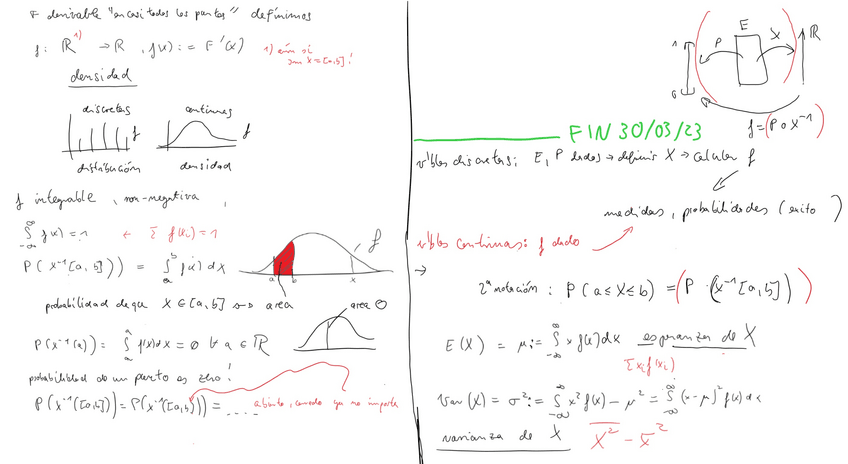 F derivable "en casi todos los puntos" definimos
f: ℝ → ℝ, f(x) := F'(x)
1)
1) aún si im X = [a,b]!
densidad
discretas continuas
f f
distribución densidad
f integrable, non-negativa,
∫_{-∞}^{∞} f(x) = 1 ← Σ f(xᵢ) = 1
P(X⁻¹[a,b]) = ∫_a^b f(x) dx
f
a b x
probabilidad de que X ∈ [a,b] area
area 0
P(X⁻¹(a)) = ∫_a^a f(x)dx = 0 ∀ a ∈ ℝ
probabilidad de un punto es zero!
P(X⁻¹([a,b])) = P(X⁻¹([a,b))) = ....
abierto, cerrado que no importa
E
P X ℝ
1
0
f = (P ∘ X⁻¹)
FIN 30/03/23
v'bles discretas: E, P dados → definir X → calcular f
medidas, probabilidades (exito)
v'bles continuas: f dado
→
2ª notación: P(a ≤ X ≤ b) = (P (X⁻¹[a,b]))
E(X) = μ := ∫_{-∞}^{∞} x f(x) dx esperanza de X
Σ xᵢ f(xᵢ)
Var(X) = σ² := ∫_{-∞}^{∞} x² f(x) - μ² = ∫_{-∞}^{∞} (x-μ)² f(x) dx
varianza de X x̄² - x̄²